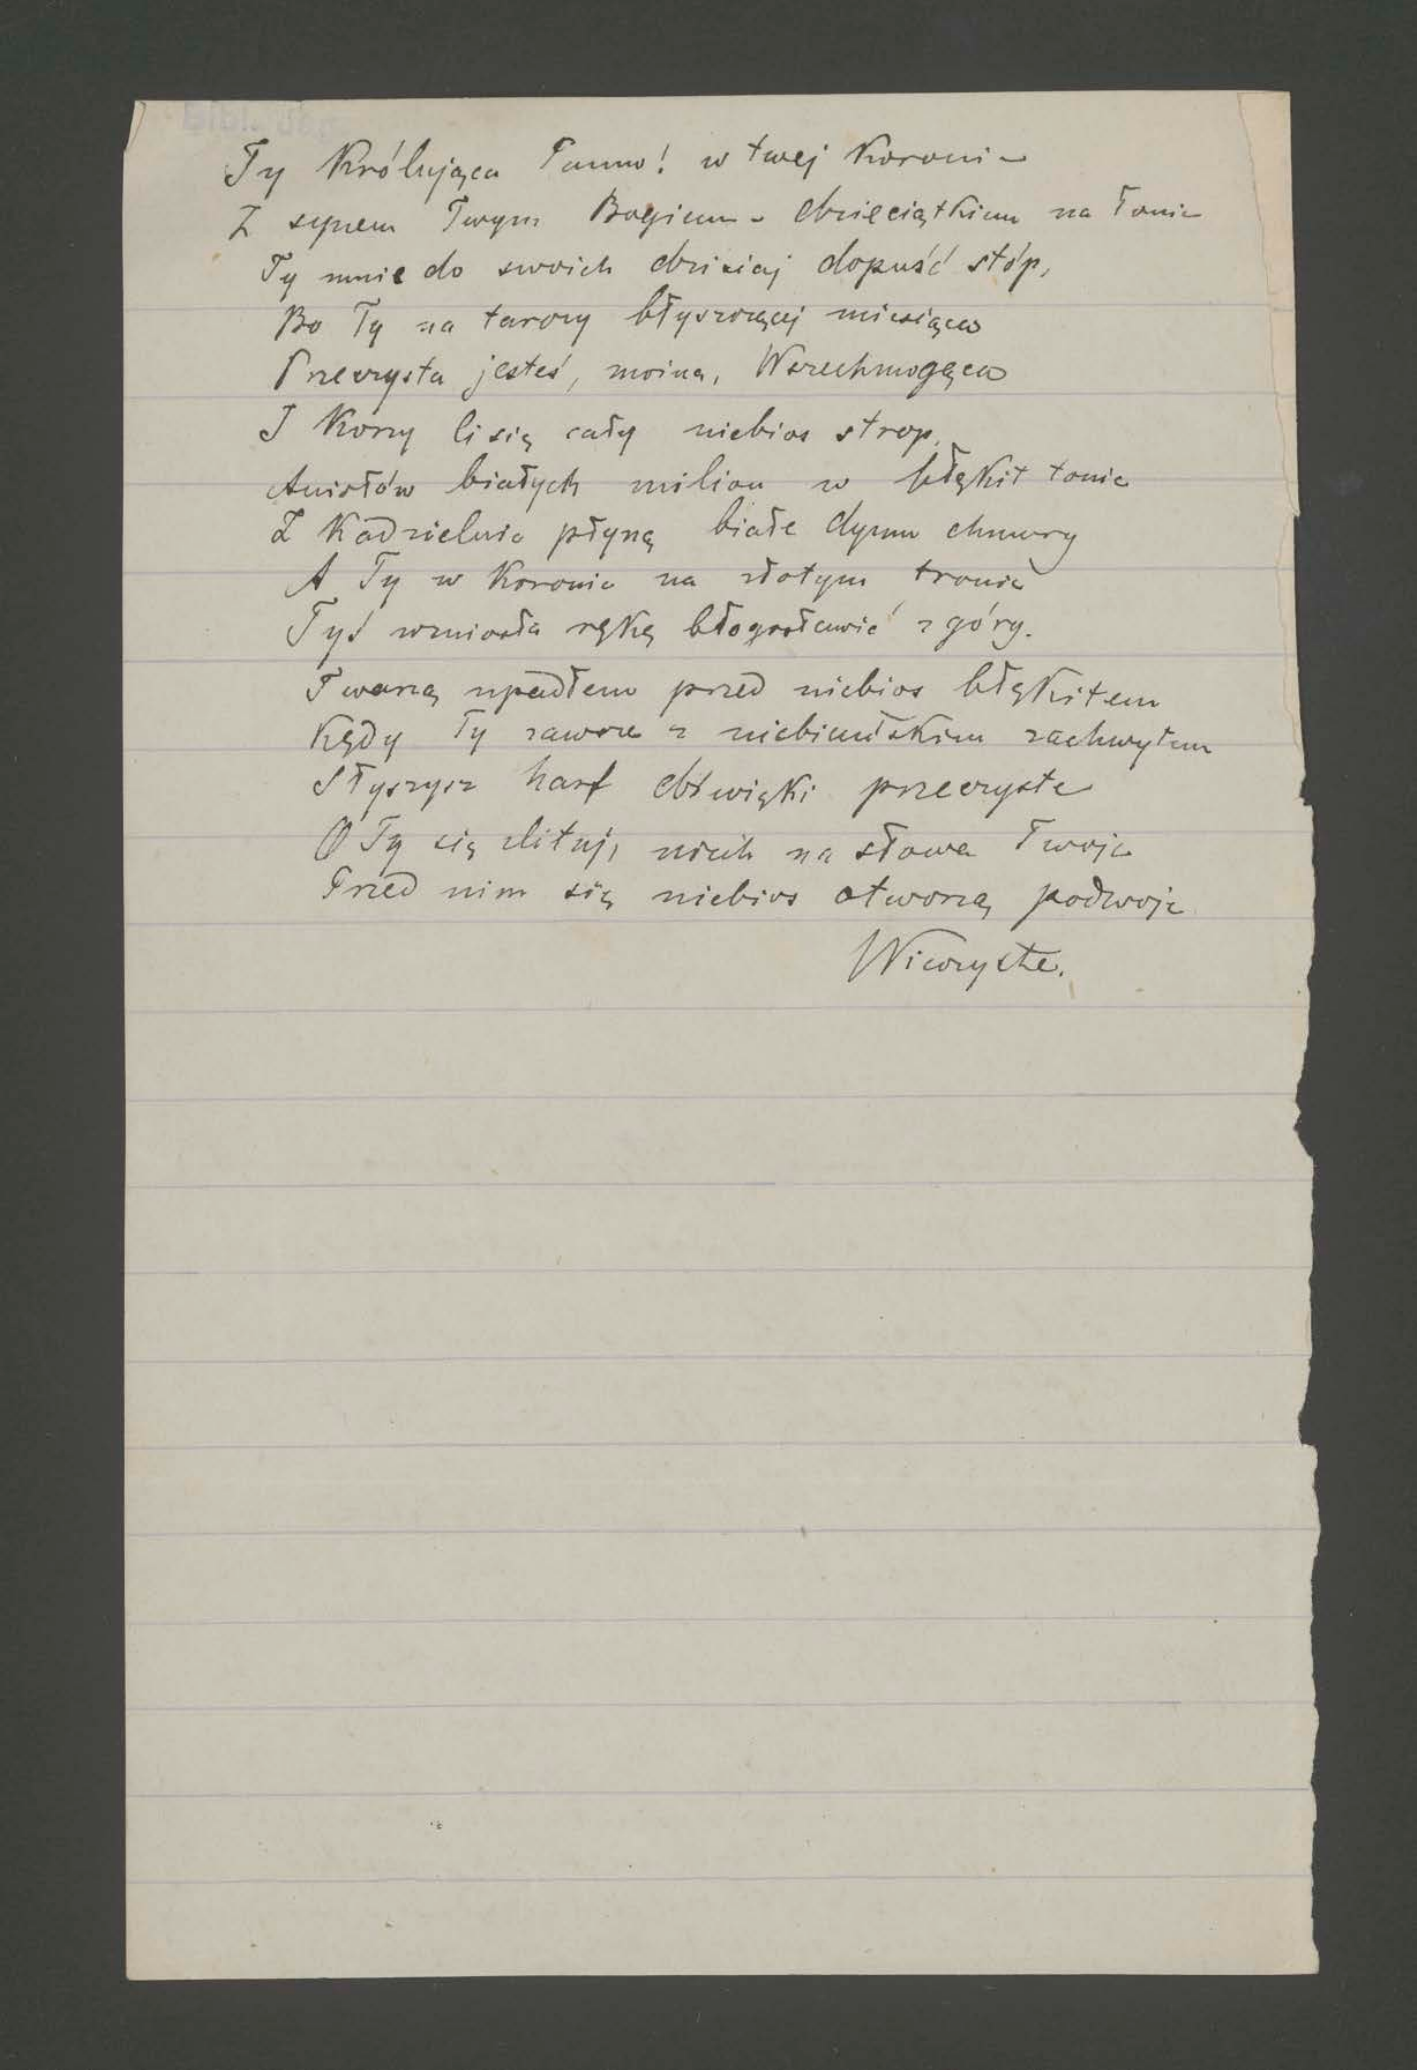 Ty Królująca Panno! w twej Koronie
Z synem Twym Bogiem - dzieciątkiem na łonie
Ty mnie do swoich dzisiaj dopuść stóp,
Bo Ty na tarczy błyszczącej miesiąca
Przeczysta jesteś, można, Wszechmogąca
I Korzy Ci się cały niebios strop,
Aniołów białych milion w błękit tonie
Z Kadzielnic płyną białe dymu chmury
A Ty w Koronie na złotym tronie
Tyś wzniosła rękę błogosławić z góry.
Twarzą upadłem przed niebios błękitem
Kędy Ty zawsze z niebiańskim zachwytem
Słyszysz harf dźwięki przeczyste
O Ty się zlituj, niech na słowa Twoje
Przed nim się niebios otworzą podwoje
Wieczyste.